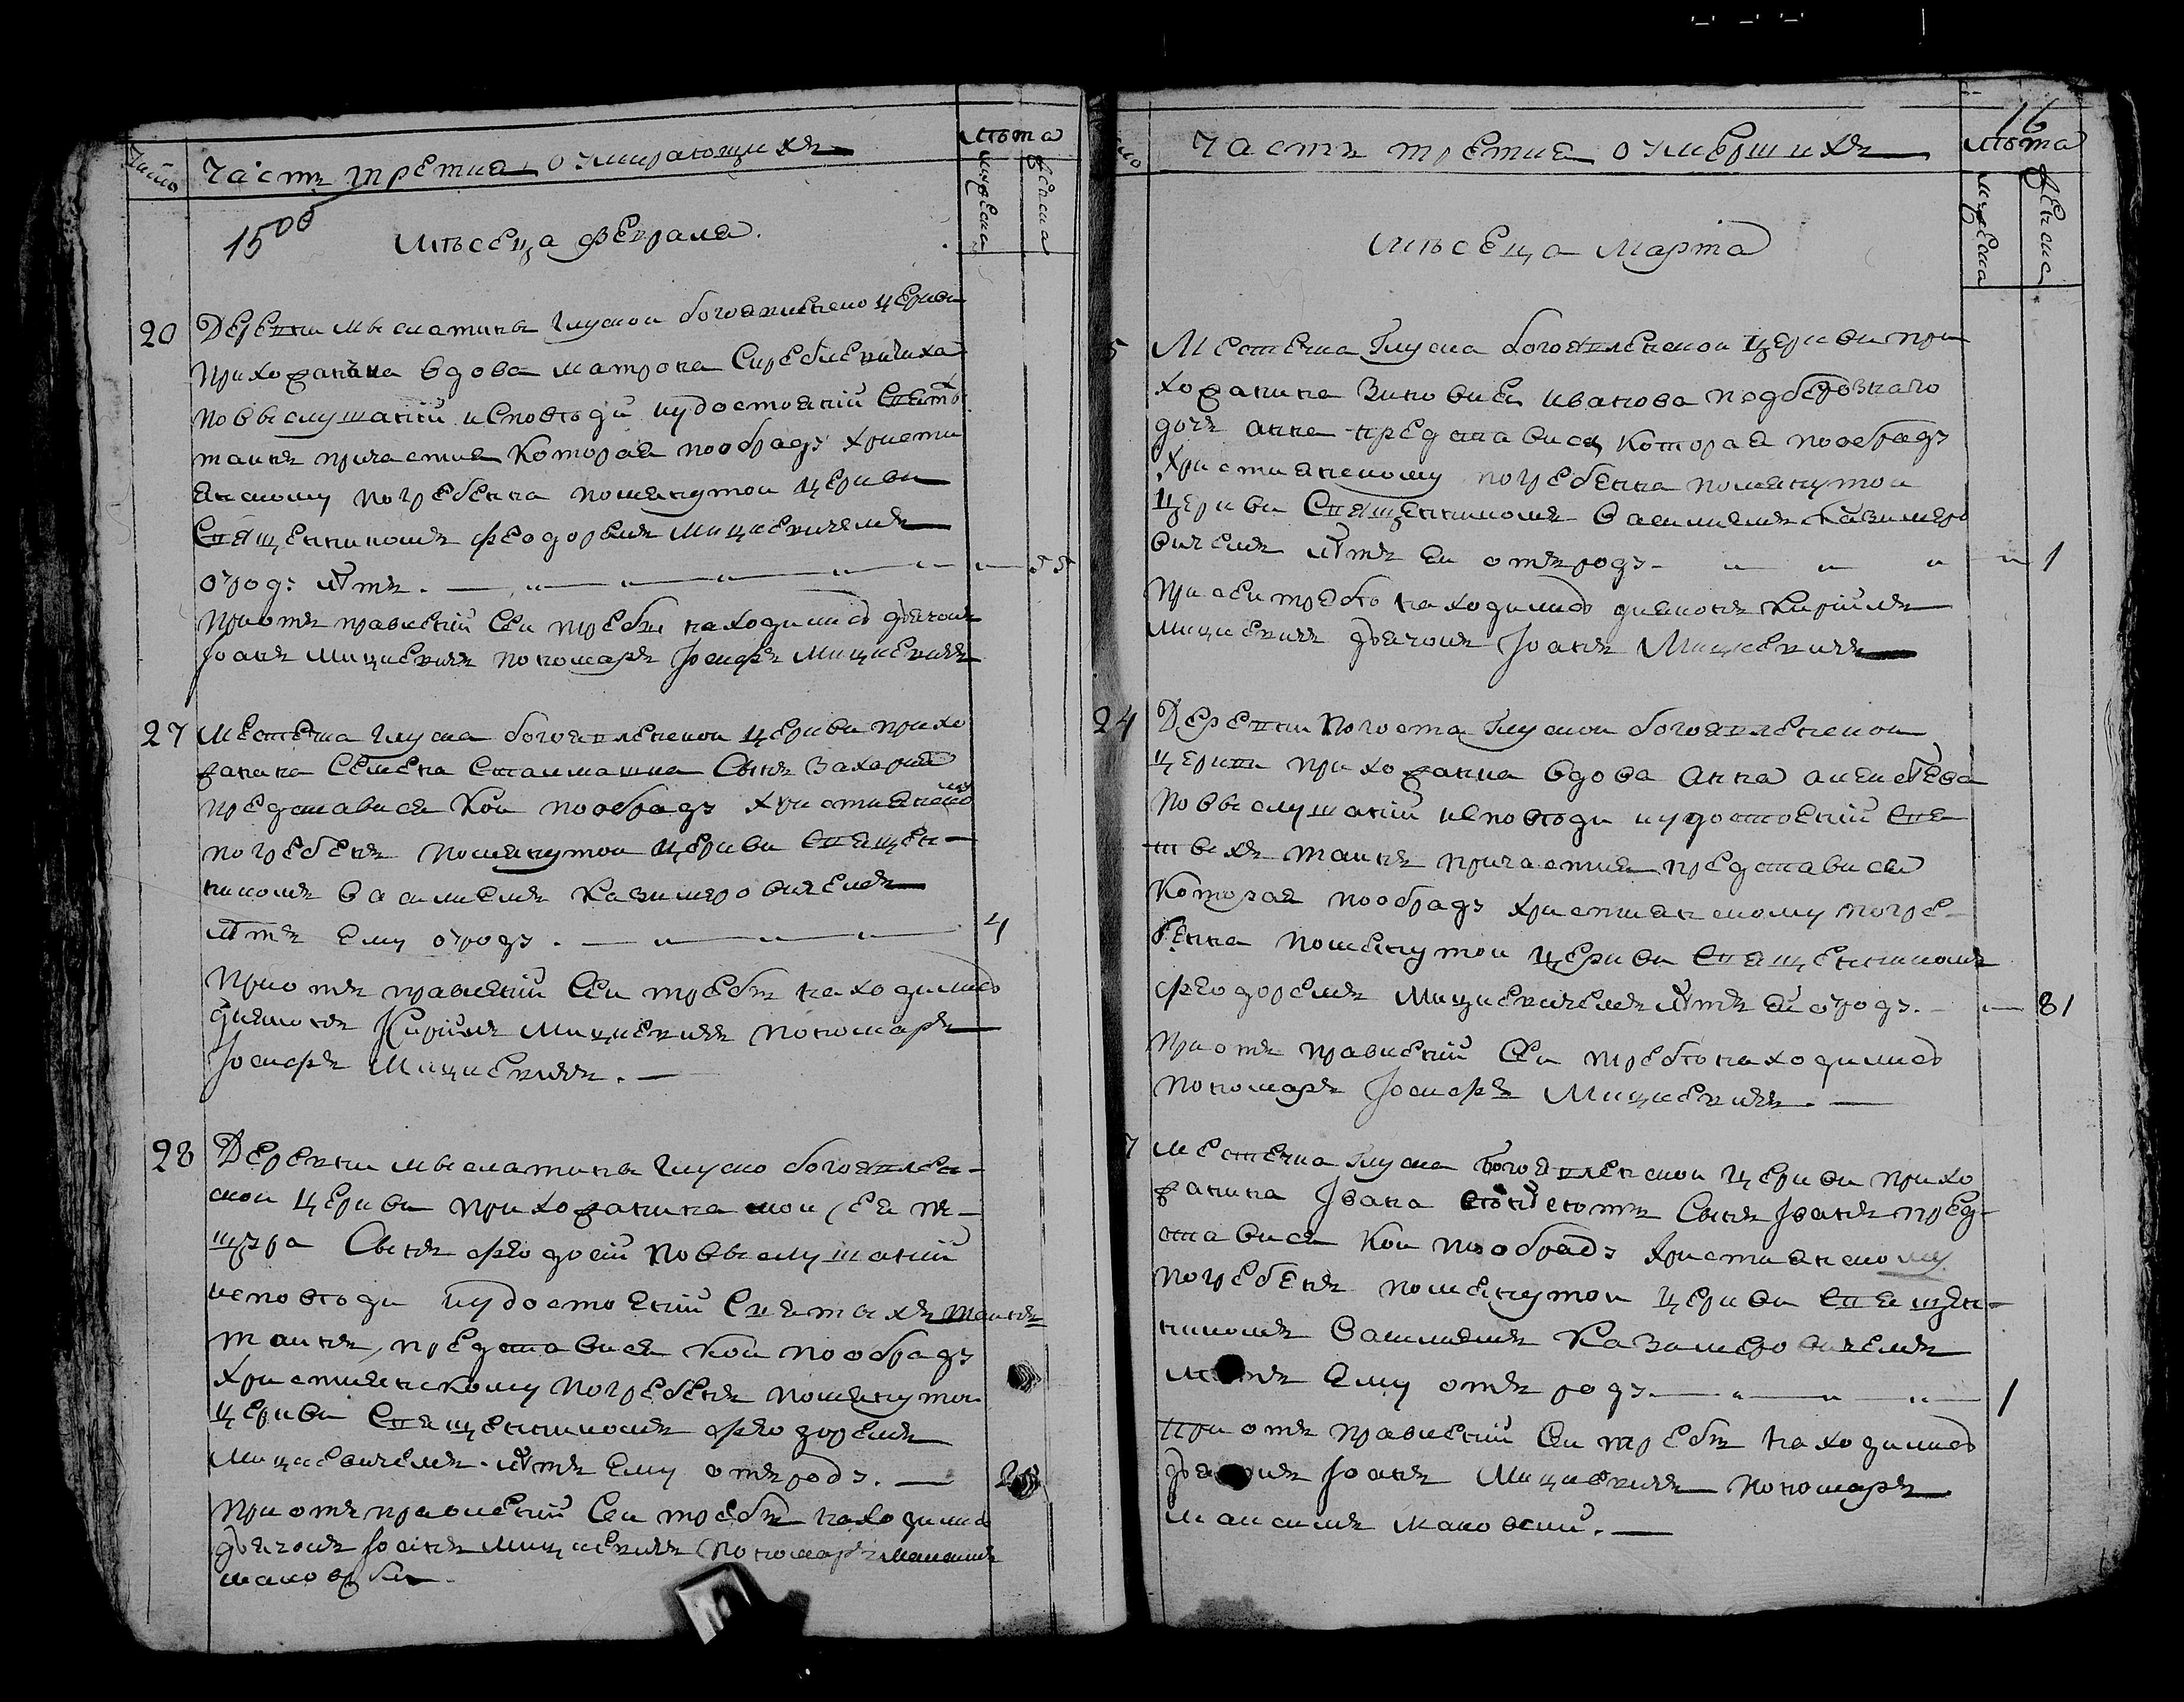 Число
Часть третиа о умирающихъ
лѣта
мужеска
женска
1500
мѣсеца февраля.
20
Деревни мыслатина Глускои богоявленско церкви
прихожанка вдова матрона
по выслушаніи исповѣди и удостояніи свято
таинъ причастия Которая пообраду христи
анскому погребенна помянутои церкви
Священникомъ феодоромъ Мицкевичемъ
отрод: лѣтъ.
55
При отправленіи сеи требы находились дьячокъ
Іоанъ Мицкевичъ пономаръ Іосифъ Мицкевичъ
27
Местечка Глуска богоявленскои церкви прихо
жанина Семена Сталмашка Сынъ Захариа
представися Кои пообраду христианско
му
погребенъ помянутои церкви Священ-
никомъ василиемъ Казимеровичемъ
лѣтъ ему отроду.
4
При отправленіи Сеи требы находились
дияконъ Кирилъ Мицкевичъ пономаръ
Іосифъ Мицкевичъ.
28
Деревни мыслатина Глуско богоявлен-
скои церкви прихожанина
Сынъ феодосіи по выслушаніи
исповѣди и удостоеніи Святыхъ таинъ
таинъ, представися Кои пообраду
Християнскому погребенъ помянутои
церкви Священникомъ феодоромъ
Мицкевичемъ. лѣтъ ему отъ роду.
При отправленіи Сеи требы находились
дьячокъ Іоанъ Мицкевичъ пономаръ максимъ
16
Часть третиа о умершихъ
лѣта
мужеска
женска
мѣсеца Марта
5
Местечка Глуска богоявленскои церкви при
хожанина Зиновиеи иванова подберознаго
дочъ анна представися Которая пообраду
Христианскому погребенна помянутои
Церкви Священникомъ василиемъ Казимеро
вичемъ лѣтъ еи отъ роду
1
При сеи требѣ находились дияконъ Кирилъ
Мицкевичъ дьячокъ Іоанъ Мицкевичъ
24
Деревни погоста Глускои богоявленскои
церкви прихожанка вдова Анна алексѣева
по выслушаніи исповѣди и удостоеніи Свя
тыхъ таинъ причастия представися
Которая пообраду христианскому погре-
бенна помянутои церкви Священникомъ
феодоромъ Мицкевичемъ лѣтъ еи отроду.
81
При отправленіи Сеи требѣ находились
пономаръ Іосифъ Мицкевичъ.
7
Местечка Глуска богоявленскои церкви прихо
жанина Івана Сынъ Іванъ пред-
ставися Кои пообраду Християнскому
погребенъ помянутои церкви Священ-
никомъ Василиемъ Казимеровичемъ
лѣтъ ему отъ роду.
1
При отправленіи Сеи требы находились
дьячокъ Іоанъ Мицкевичъ пономаръ
максимъ маковскии.